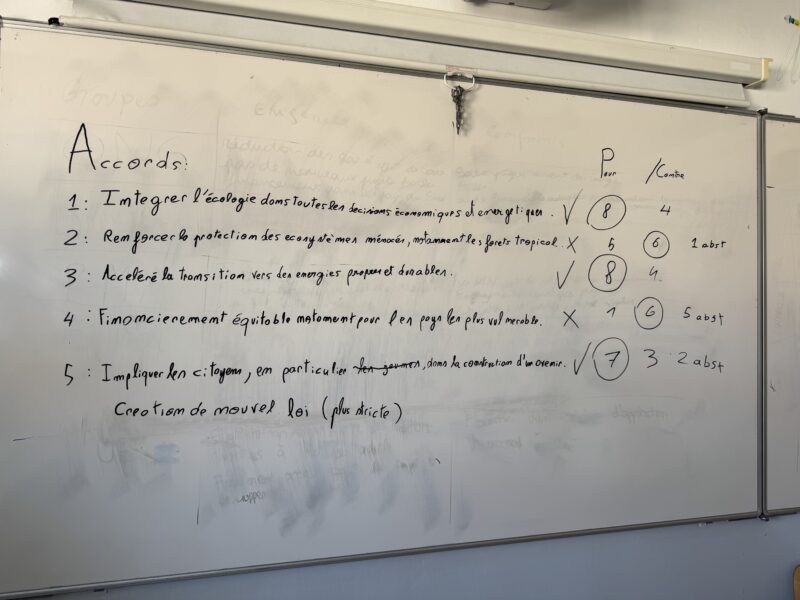 Accords: Pour /Contre
1: Integrer l'écologie dans toutes les decisions économiques et energetiques. ✓ 8 4
2: Remforcer la protection des ecosystèmes ménacés, notamment les forets tropical. X 5 6 1 abst
3: Acceléré la transition vers des energies propres et durables. ✓ 8 4
4: Financierement équitable notament pour les pays les plus vulnerable. X 1 6 5 abst
5: Impliquer les citoyens, en particulier les jeunes, dans la construction d'un avenir. ✓ 7 3 2 abst
Creation de nouvel loi (plus stricte)